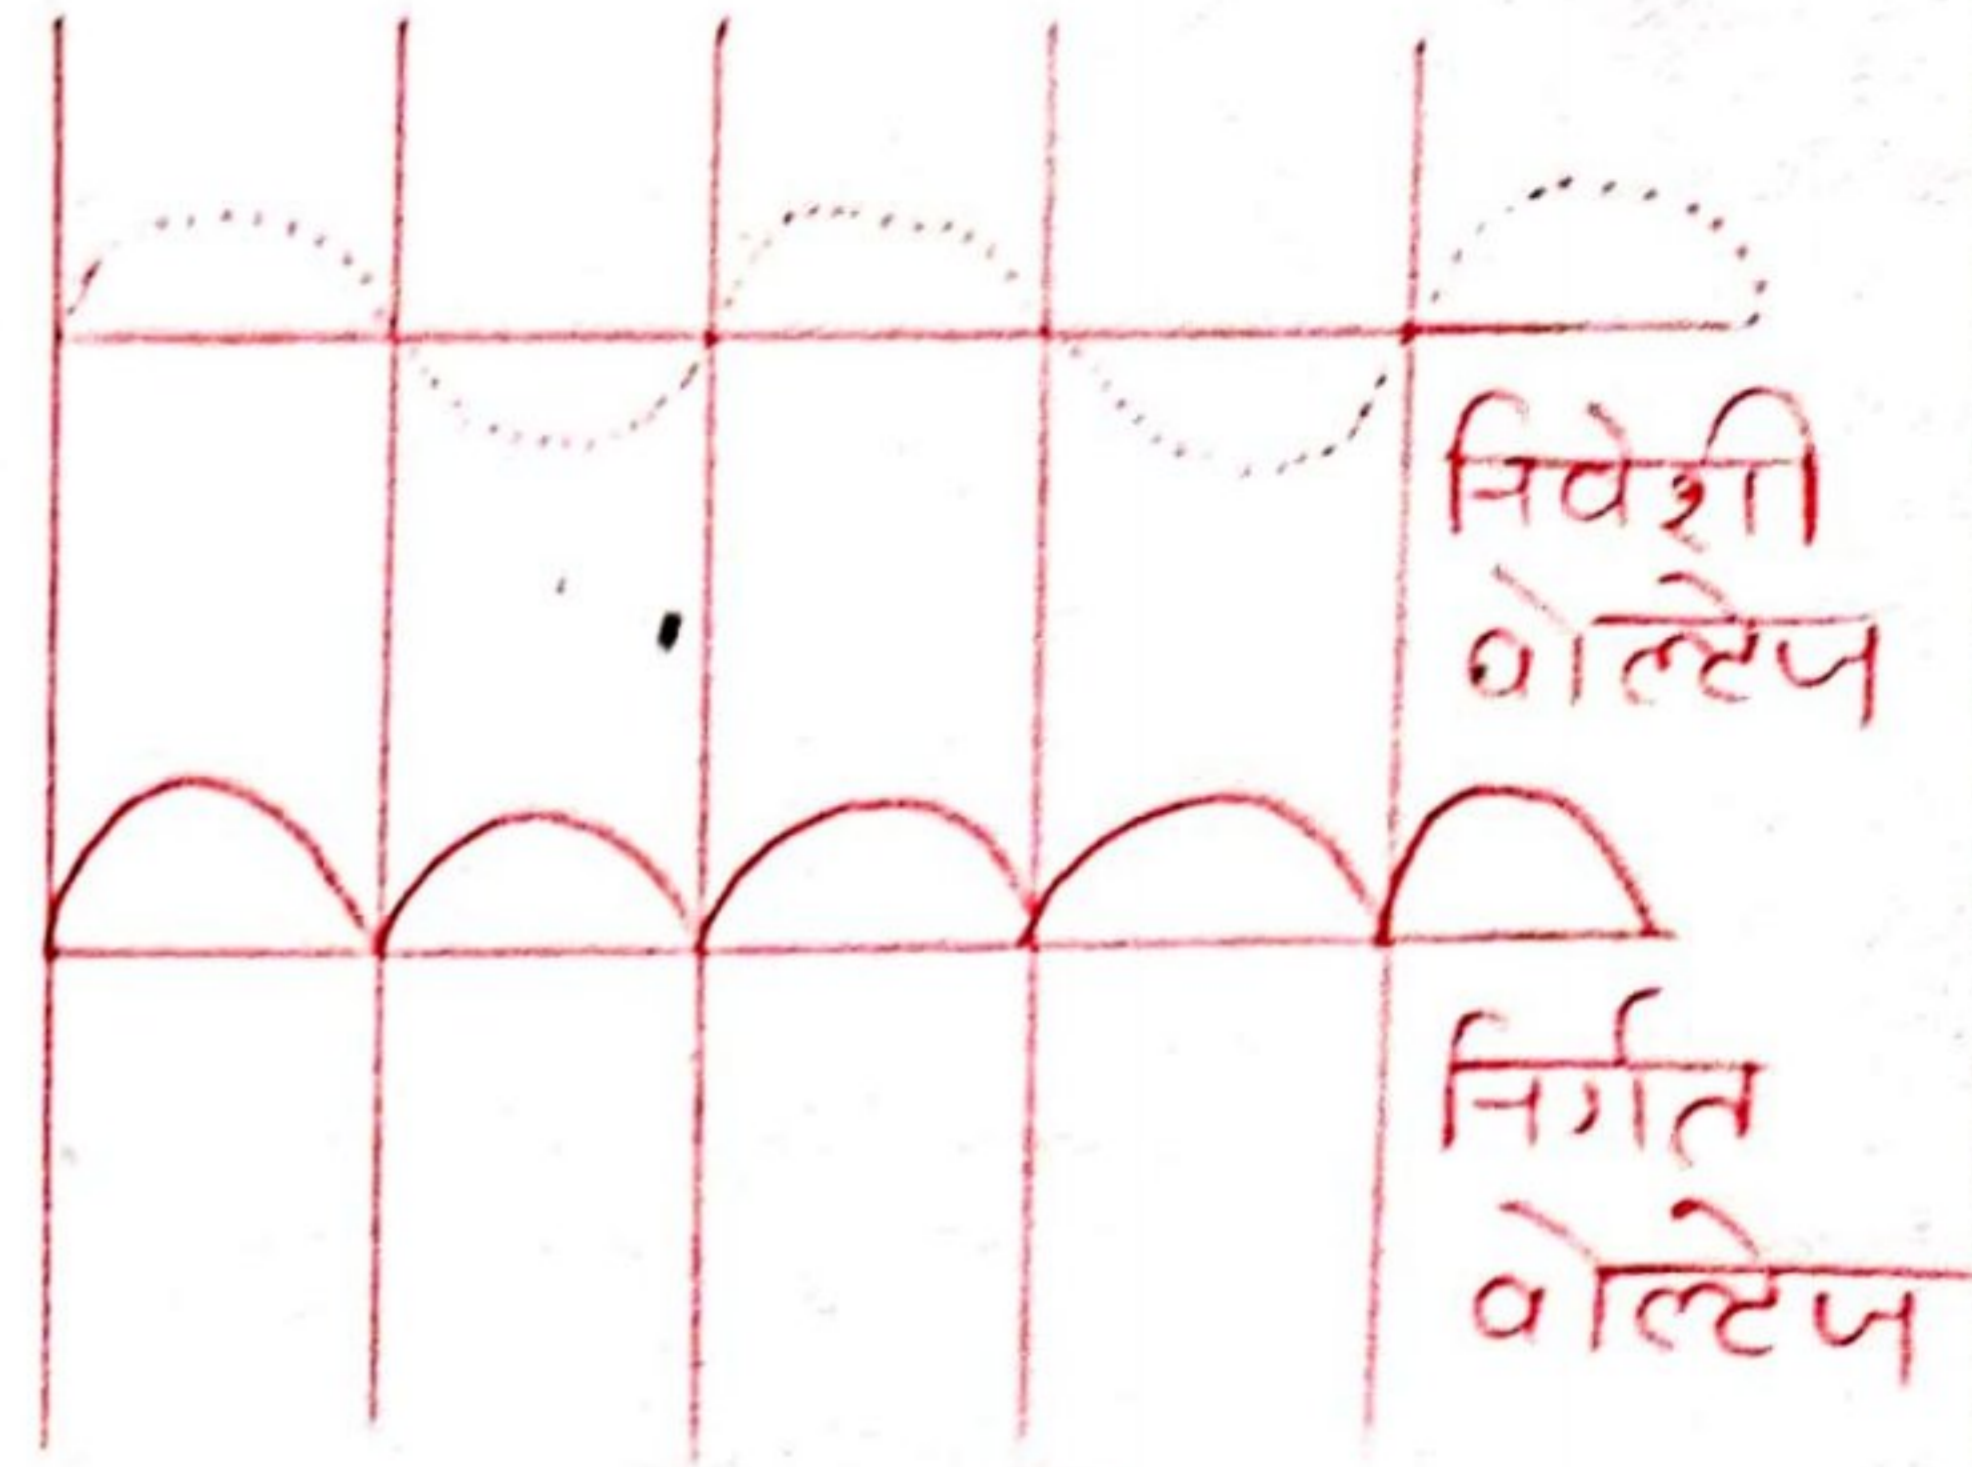 निवेशी
वोल्टेज
निर्गत
वोल्टेज